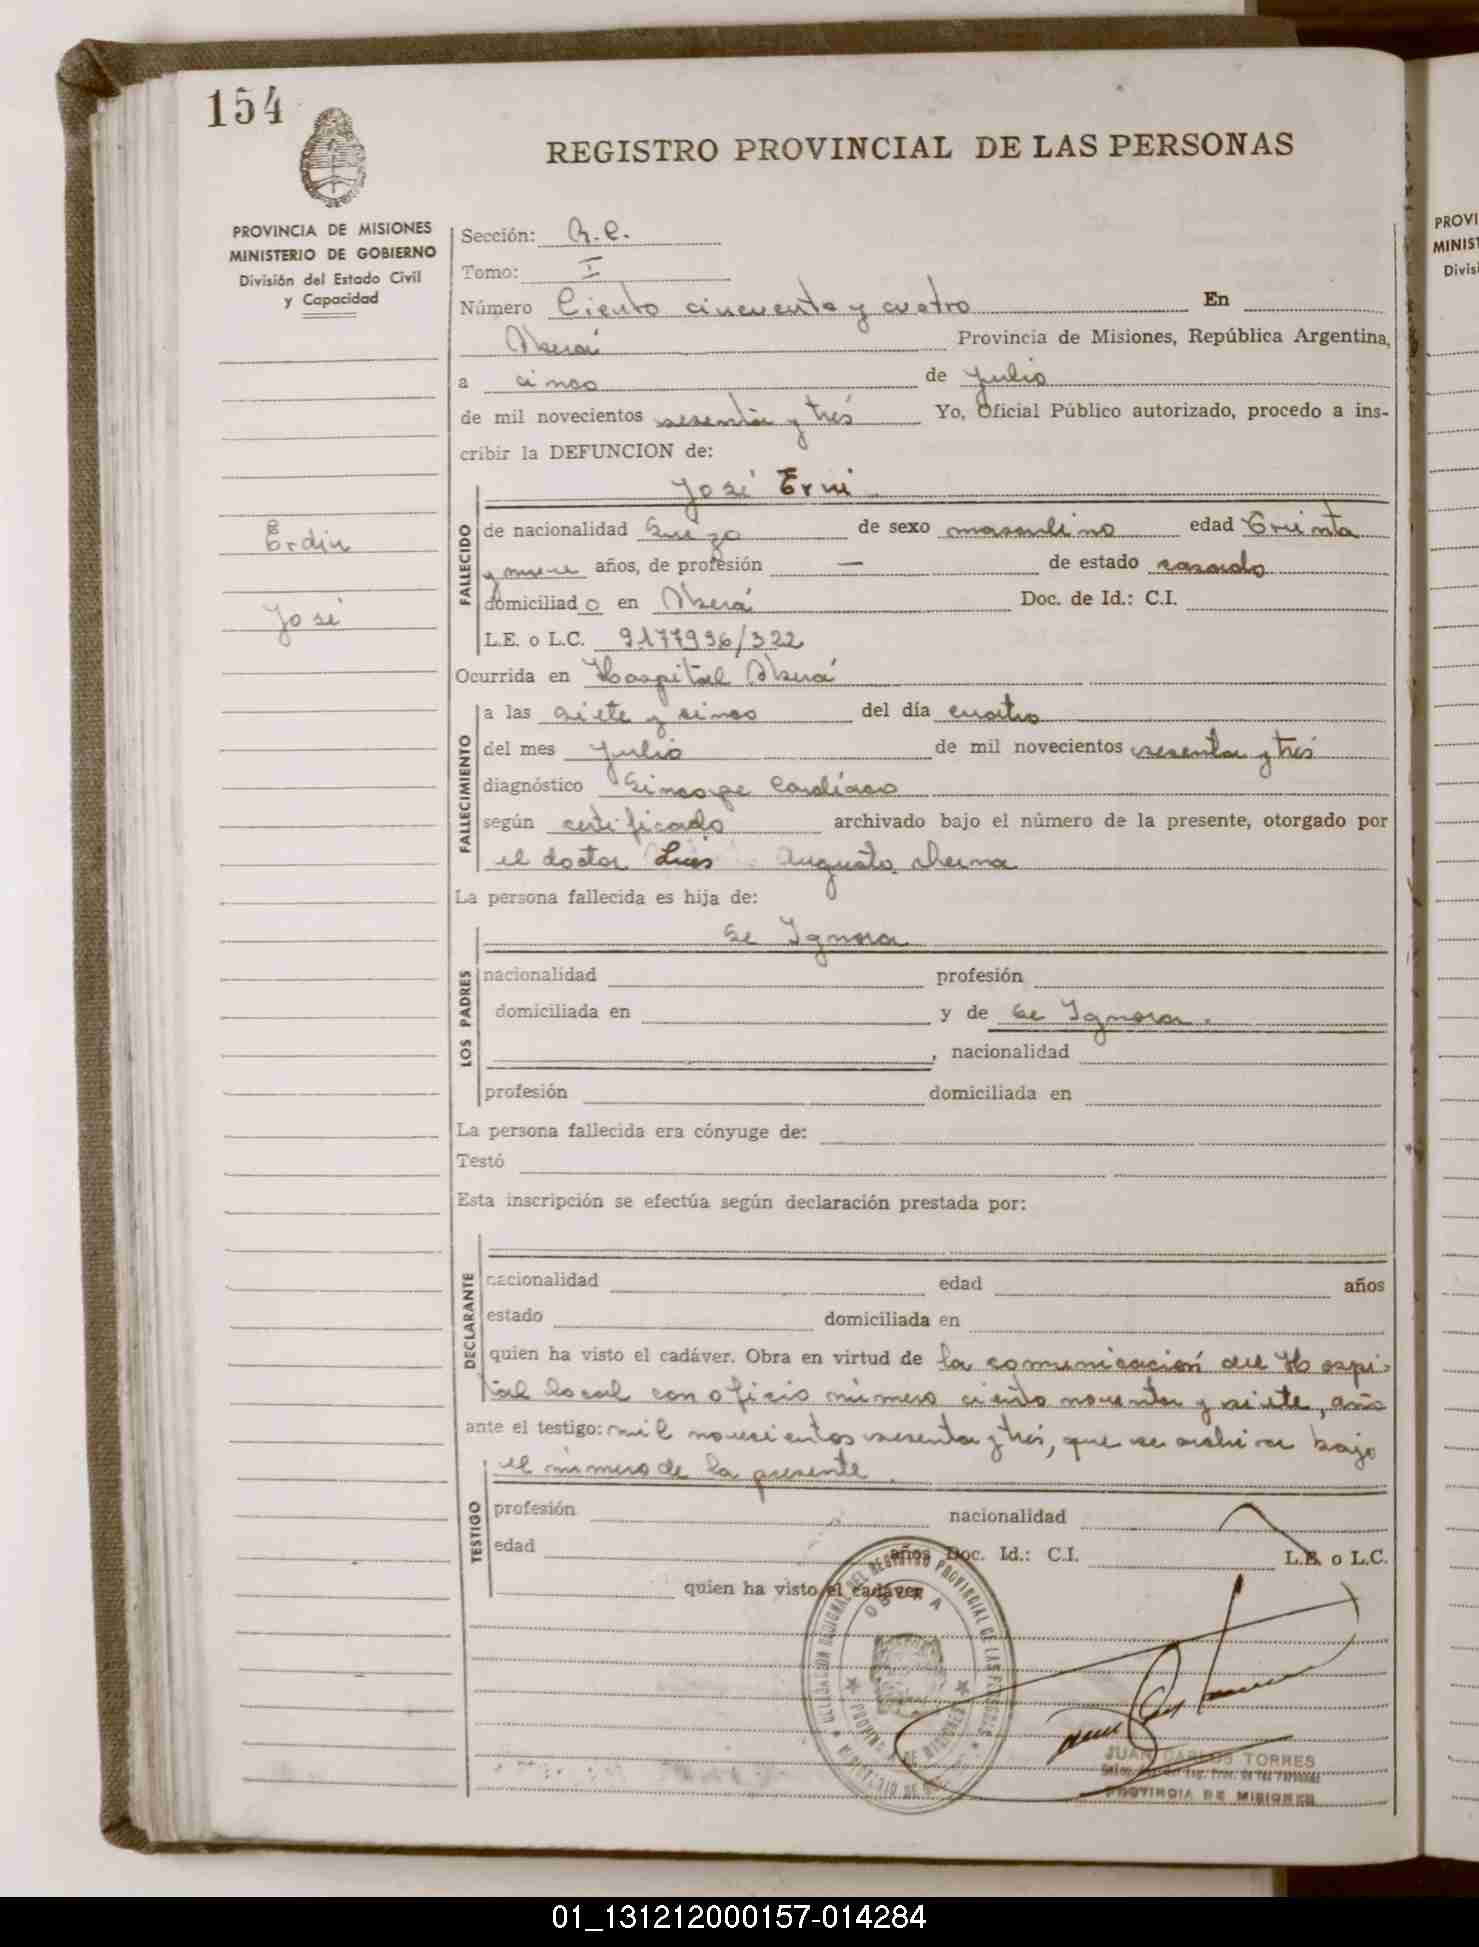 154
REGISTRO PROVINCIAL DE LAS PERSONAS
PROVINCIA DE MISIONES
MINISTERIO DE GOBIERNO
División del Estado Civil
y Capacidad
Sección: R.C.
Tomo: I
Número Ciento cincuenta y cuatro En
Oberá Provincia de Misiones, República Argentina,
a cinco de Julio
de mil novecientos sesenta y trés Yo, Oficial Público autorizado, procedo a ins-
cribir la DEFUNCION de:
José Erni
FALLECIDO
de nacionalidad Suizo de sexo masculino edad Treinta
y nueve años, de profesión — de estado casado
domiciliado en Oberá Doc. de Id.: C.I.
L.E. o L.C. 9177936/322
Erdin
José
Ocurrida en Hospital Oberá
FALLECIMIENTO
a las siete y cinco del día cuatro
del mes Julio de mil novecientos sesenta y trés
diagnóstico Sincope Cardíaco
según certificado archivado bajo el número de la presente, otorgado por
el doctor Luis Augusto
La persona fallecida es hija de:
Se Ignora
LOS PADRES
nacionalidad profesión
domiciliada en y de Se Ignora.
, nacionalidad
profesión domiciliada en
La persona fallecida era cónyuge de:
Testó
Esta inscripción se efectúa según declaración prestada por:
DECLARANTE
nacionalidad edad años
estado domiciliada en
quien ha visto el cadáver. Obra en virtud de la comunicación del Hospi-
tal local con oficio número ciento noventa y siete, año
ante el testigo: mil novecientos sesenta y trés, que se archiva bajo
el número de la presente.
TESTIGO
profesión nacionalidad
edad años Doc. Id.: C.I. L.E. o L.C.
quien ha visto el cadáver
DELEGACION REGIONAL DEL REGISTRO PROVINCIAL DE LAS PERSONAS
OBERA
PROVINCIA DE MISIONES
JUAN CARLOS TORRES
PROVINCIA DE MISIONES
PROVI
MINIST
Divisi
01_131212000157-014284